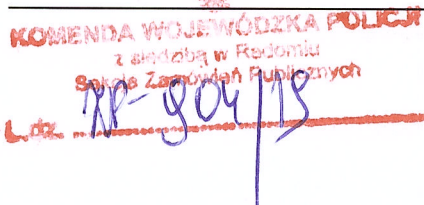 KOMENDA WOJEWÓDZKA POLICJI
z siedzibą w Radomiu
Sekcja Zamówień Publicznych
L.dz. ZP-904/19